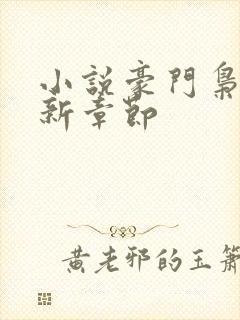 小説豪門梟
新章節
黄老邪的玉簫